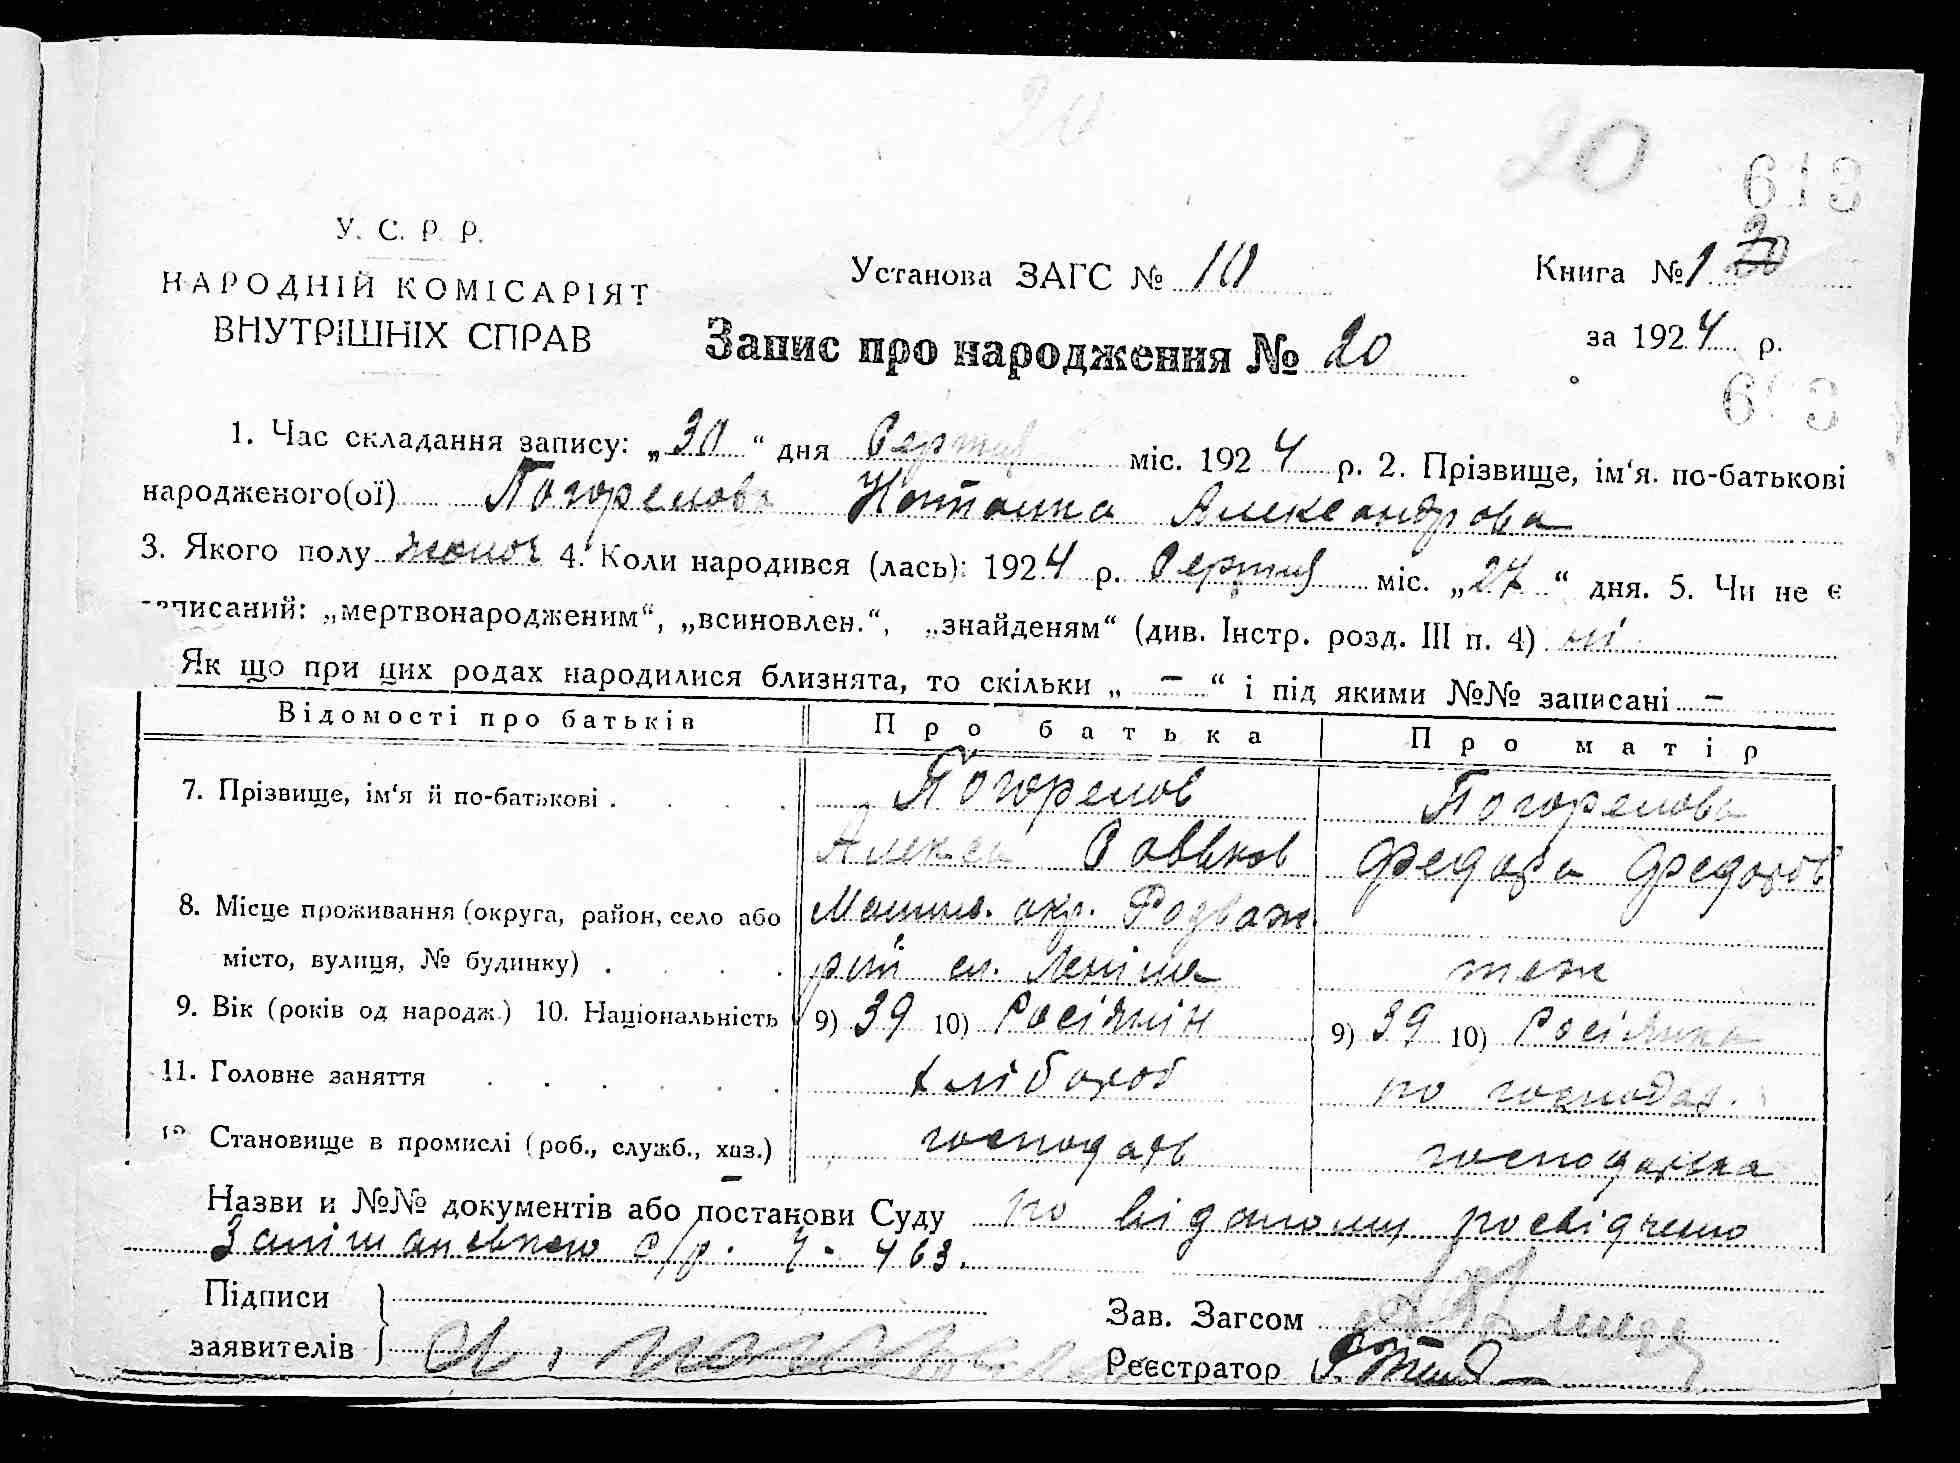 20 20
613
У. С. Р. Р.
НАРОДНІЙ КОМІСАРІЯТ
ВНУТРІШНІХ СПРАВ
Установа ЗАГС № 10
Книга № 1
за 1924 р.
Запис про народження № 20
1. Час складання запису: „30“ дня Серпня міс. 1924 р. 2. Прізвище, ім‘я. по-батькові
народженого(ої) Погорелова Наталка Александрова
3. Якого полу жіноч 4. Коли народився (лась): 1924 р. Серпня міс. „27“ дня. 5. Чи не є
записаний: „мертвонародженим“, „всиновлен.“, „знайденям“ (див. Інстр. розд. III п. 4) ні
Як що при цих родах народилися близнята, то скільки „ – “ і під якими №№ записані –
Відомості про батьків Про батька Про матір
7. Прізвище, ім‘я й по-батькові . . . . Погорелов Погорелова
Алекса Саввков Федора Федоров
8. Місце проживання (округа, район, село або Малин. окр. Розваж.
місто, вулиця, № будинку) . . . . рай ел. теж
9. Вік (років од народж.) 10. Національність 9) 39 10) Росіянін 9) 39 10) Росіянка
11. Головне заняття . . . . . . хлібороб по господар.
12 Становище в промислі (роб., служб., хаз.) господарь господарька
Назви и №№ документів або постанови Суду по посвідчено
с/р. ч. 463.
Підписи
заявителів
Зав. Загсом
Реєстратор